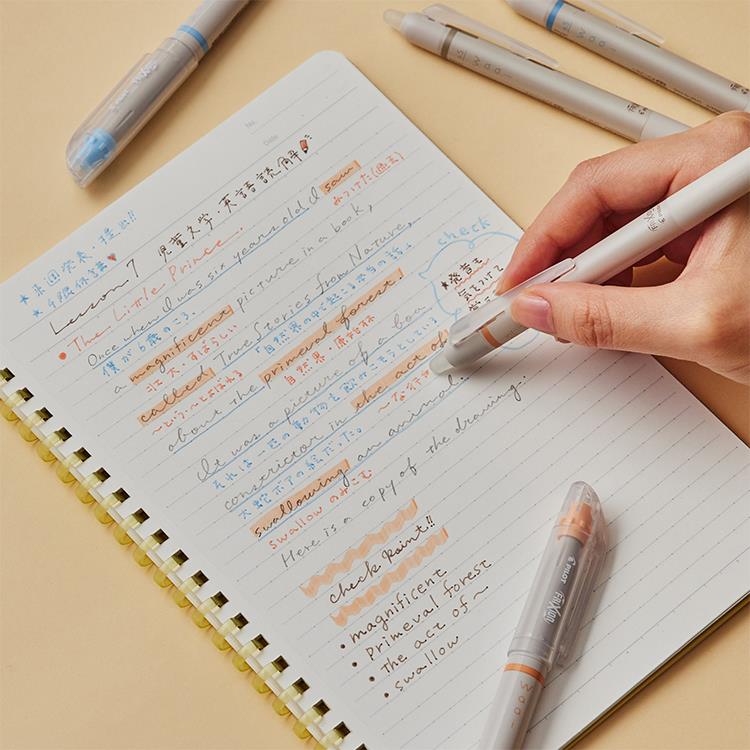 No.
Date
Lesson 7 児童文学・英語読解
The Little Prince.
Once when I was six years old I saw
僕が6歳のころ、
みつけた(過去)
a magnificent picture in a book,
壮大・すばらしい
called True Stories from Nature,
〜という・〜とよばれる
「自然界の中で起こる本当の話」
about the primeval forest.
自然界・原始林
It was a picture of a boa
それは一匹の動物を飲みこもうとしている
constrictor in the act of
大蛇ボアの絵だった。
swallowing an animal.
swallow のみこむ
Here is a copy of the drawing.
check
★発音も
気をつけて
check Point!!
・magnificent
・Primeval forest
・The act of〜
・swallow
PILOT
FRIXION
Waai
Waai
Waai
FRIXION
FRIXION